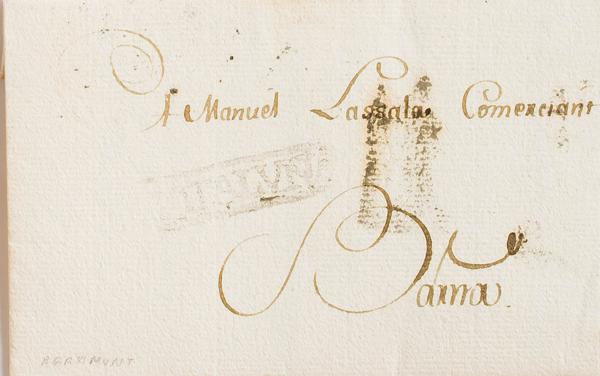 A Manuel Lassala Comerciant
Barna
AGRAMUNT